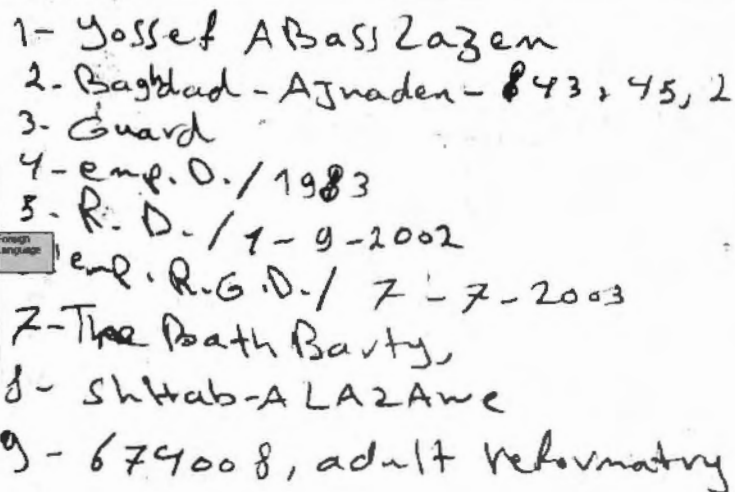 1- Yossef ABass Lazem
2- Baghdad - AJnaden - 843, 45, 2
3- Guard
4- emp. D. / 1983
5- R. D. / 1-9-2002
Foreign Language
emp. R.G.D. / 7-7-2003
7- The Baath Barty,
8- Shhab-ALAZAwe
9- 674008, adult reformatry